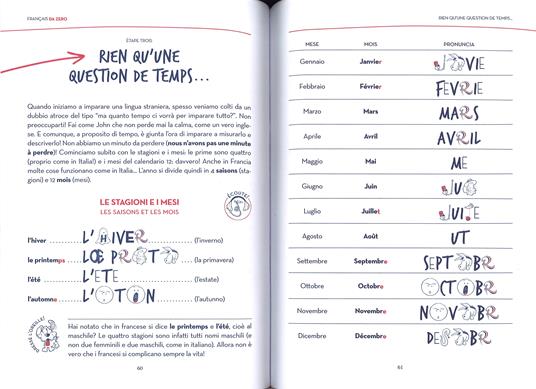 FRANÇAIS DA ZERO
ÉTAPE TROIS
RIEN QU'UNE
QUESTION DE TEMPS...
Quando iniziamo a imparare una lingua straniera, spesso veniamo colti da un
dubbio atroce del tipo "ma quanto tempo ci vorrà per imparare tutto?". Non
preoccuparti! Fai come John che non perde mai la calma, come un vero ingle-
se. E comunque, a proposito di tempo, è giunta l'ora di imparare a misurarlo e
descriverlo! Non abbiamo un minuto da perdere (nous n'avons pas une minute
à perdre)! Cominciamo subito con le stagioni e i mesi: le prime sono quattro
(proprio come in Italia!) e i mesi del calendario 12: davvero! Anche in Francia
molte cose funzionano come in Italia... L'anno si divide quindi in 4 saisons (sta-
gioni) e 12 mois (mesi).
LE STAGIONI E I MESI
LES SAISONS ET LES MOIS
ÉCOUTE!
l'hiver L'HIVER (l'inverno)
le printemps (la primavera)
l'été L'ETE (l'estate)
l'automne (l'autunno)
Hai notato che in francese si dice le printemps e l'été, cioè al
maschile? Le quattro stagioni sono infatti tutti nomi maschili (e
non due femminili e due maschili, come in italiano). Allora non è
vero che i francesi si complicano sempre la vita!
60
RIEN QU'UNE QUESTION DE TEMPS...
MESE MOIS PRONUNCIA
Gennaio Janvier
Febbraio Février FEVRIE
Marzo Mars MARS
Aprile Avril AVRIL
Maggio Mai ME
Giugno Juin
Luglio Juillet
Agosto Août UT
Settembre Septembre
Ottobre Octobre
Novembre Novembre
Dicembre Décembre
61